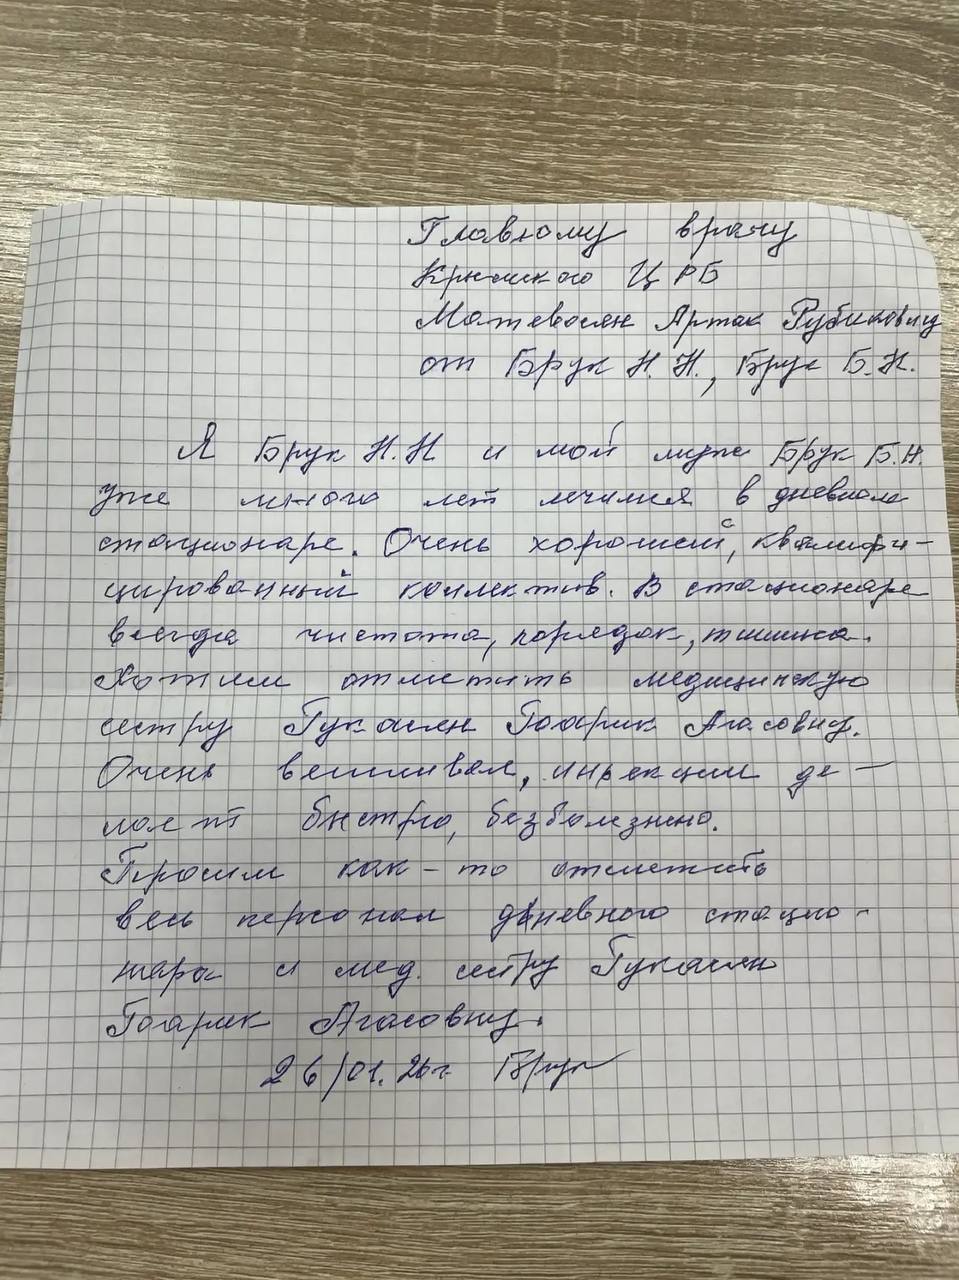 Главному врачу
Крымского ЦРБ
Матевосян Артак Рубиковичу
от Брук Н.Н., Брук Б.Н.
Я Брук Н.Н и мой муж Брук Б.Н.
уже много лет лечимся в дневном
стационаре. Очень хороший, квалифи-
цированный коллектив. В стационаре
всегда чистота, порядок, тишина.
Хотим отметить медицинскую
сестру Гукасян Гоарик Агасовну.
Очень вежливая, инъекции де-
лает быстро, безболезнено.
Просим как-то отметить
весь персонал дневного стацио-
нара и мед. сестру Гукасян
Гоарик Агасовну.
26/01.26г. Брук